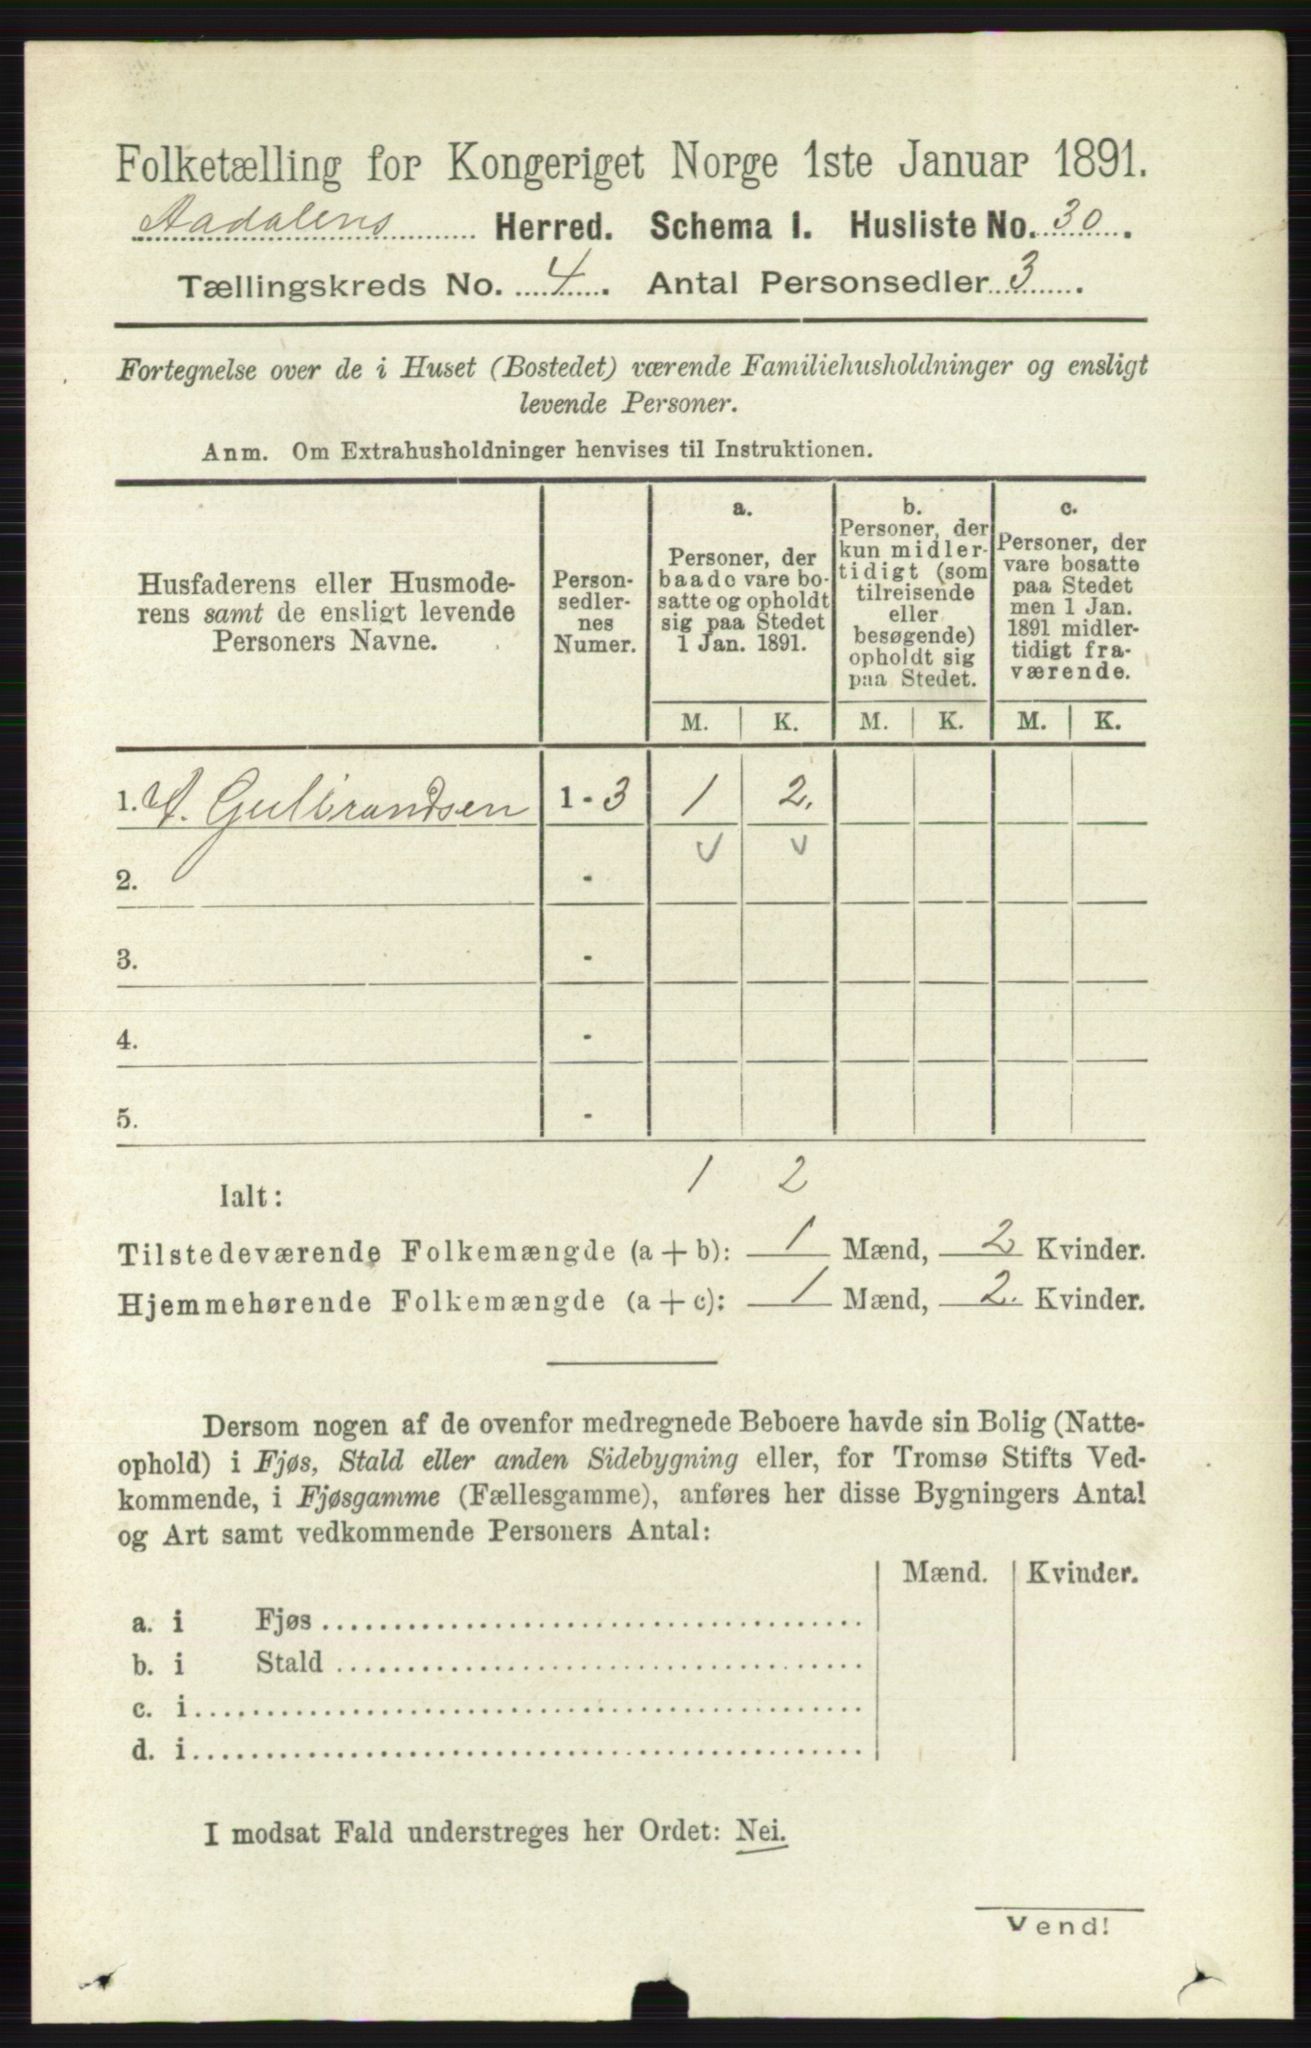 Folketælling for Kongeriget Norge 1ste Januar 1891.
Aadalens Herred. Schema I. Husliste No. 30.
Tællingskreds No. 4. Antal Personsedler 3.
Fortegnelse over de i Huset (Bostedet) værende Familiehusholdninger og ensligt
levende Personer.
Anm. Om Extrahusholdninger henvises til Instruktionen.
Husfaderens eller Husmode-
rens samt de ensligt levende
Personers Navne.
Person-
sedler-
nes
Numer.
a.
Personer, der
baade vare bo-
satte og opholdt
sig paa Stedet
1 Jan. 1891.
b.
Personer, der
kun midler-
tidigt (som
tilreisende
eller
besøgende)
opholdt sig
paa Stedet.
c.
Personer, der
vare bosatte
paa Stedet
men 1 Jan.
1891 midler-
tidigt fra-
værende.
M. K. M. K. M. K.
1. A. Gulbrandsen 1 - 3 1 2.
2. -
3. -
4. -
5. -
Ialt: 1 2
Tilstedeværende Folkemængde (a + b): 1 Mænd, 2 Kvinder.
Hjemmehørende Folkemængde (a + c): 1 Mænd, 2. Kvinder.
Dersom nogen af de ovenfor medregnede Beboere havde sin Bolig (Natte-
ophold) i Fjøs, Stald eller anden Sidebygning eller, for Tromsø Stifts Ved-
kommende, i Fjøsgamme (Fællesgamme), anføres her disse Bygningers Antal
og Art samt vedkommende Personers Antal:
Mænd. Kvinder.
a. i Fjøs
b. i Stald
c. i
d. i
I modsat Fald understreges her Ordet: Nei.
Vend!